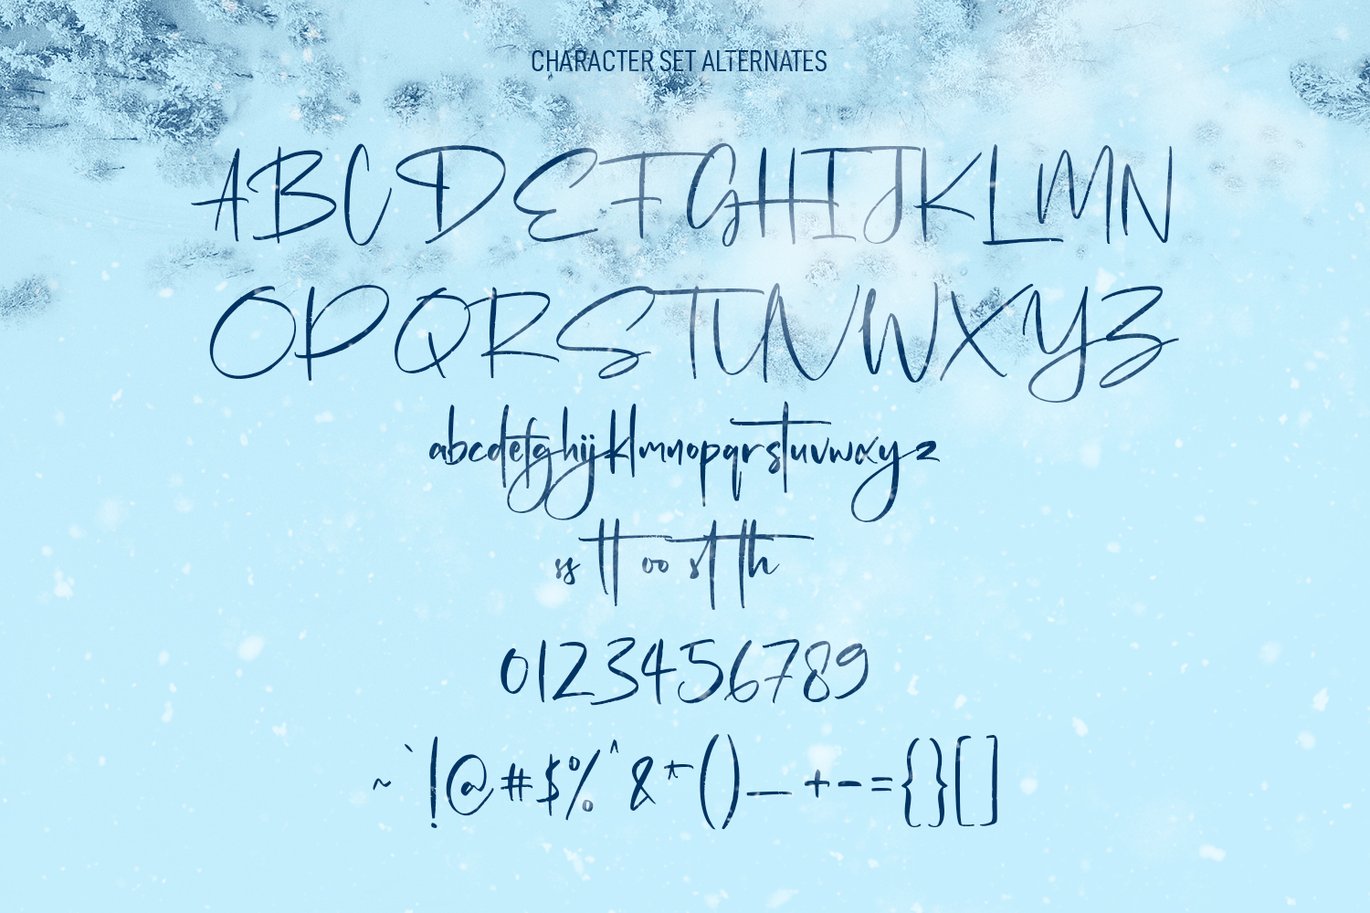 CHARACTER SET ALTERNATES
ABCDEFGHIJKLMN
OPQRSTUVWXYZ
abcdefghijklmnopqrstuvwxyz
ss tt oo st th
0123456789
~`!@#$%^&*()_+-={}[]